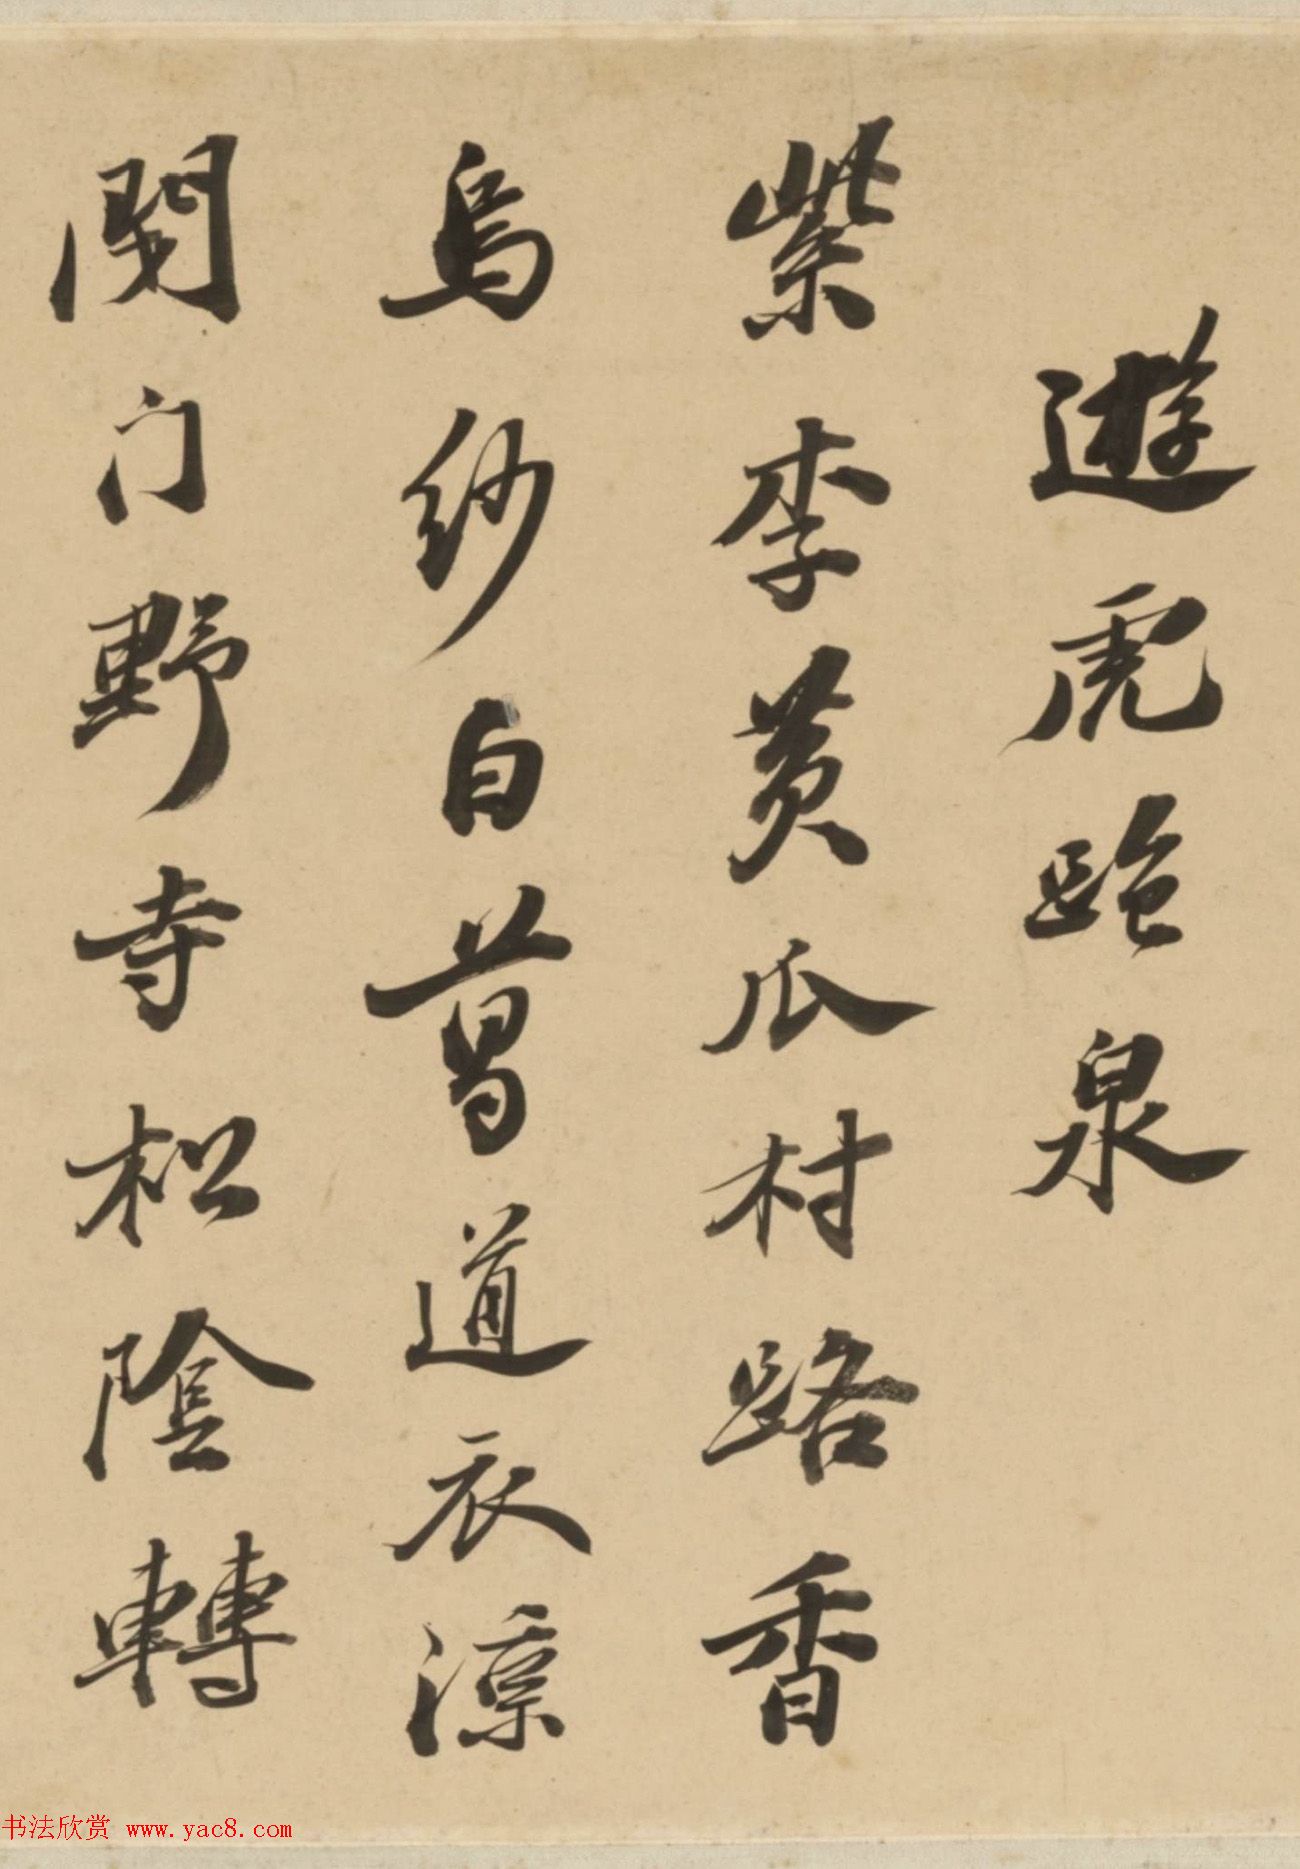 遊虎跑泉
紫李黄瓜村路香
烏紗白葛道衣涼
閉门野寺松陰轉
书法欣赏 www.yac8.com